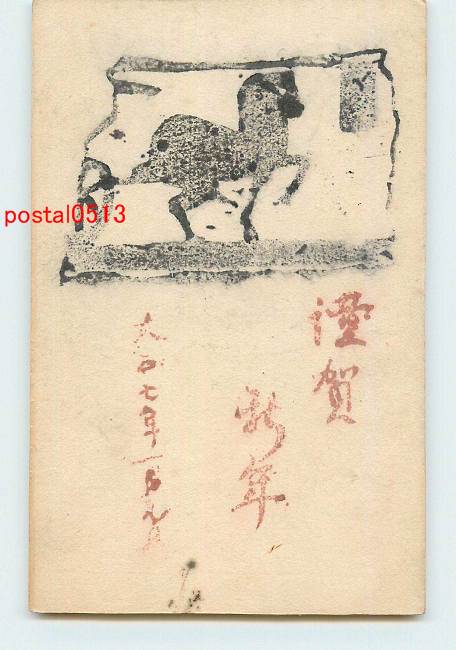 謹賀
新年
大正七年一月元旦
postal0513